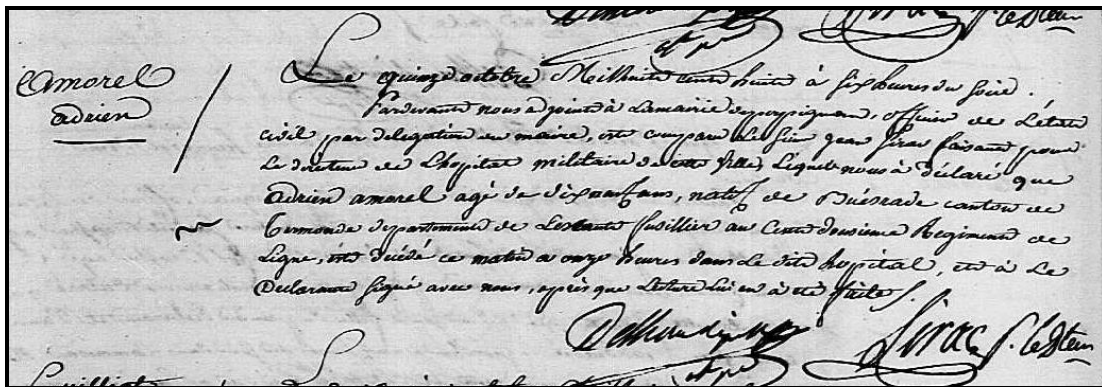 amorel
adrien
Le quinze octobre Mil huit cent huit à six heures du soir.
Pardevant nous adjoint à la mairie de perpignan, officier de L'état
civil par délégation du maire, est comparu Le Sieur jean Sirac faisant pour
Le directeur de L'hopital militaire de cette Ville, Lequel nous à déclaré que
adrien amorel agé de dix neuf ans, natif de canton de
termonde département de Lescaut fusillier au Cent douzieme Regiment de
Ligne, est décédé ce matin a onze heures dans Le dit hopital, et à Le
Déclarant signé avec nous, après que Lecture lui en à été faite.
Sirac p. le Dteur